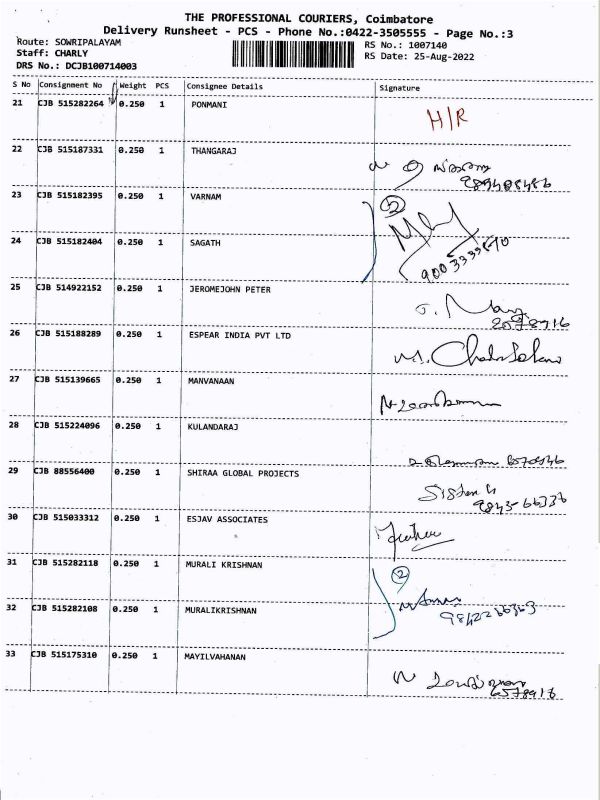 THE PROFESSIONAL COURIERS, Coimbatore
Delivery Runsheet - PCS - Phone No.:0422-3505555 - Page No.:3
Route: SOWRIPALAYAM
RS No.: 1007140
Staff: CHARLY
RS Date: 25-Aug-2022
DRS No.: DCJB100714003
S No Consignment No Weight PCS Consignee Details Signature
21 CJB 515282264 0.250 1 PONMANI H/R
22 CJB 515187331 0.250 1 THANGARAJ
23 CJB 515182395 0.250 1 VARNAM 2
24 CJB 515182404 0.250 1 SAGATH
25 CJB 514922152 0.250 1 JEROMEJOHN PETER
26 CJB 515188289 0.250 1 ESPEAR INDIA PVT LTD
27 CJB 515139665 0.250 1 MANVANAAN
28 CJB 515224096 0.250 1 KULANDARAJ
29 CJB 88556400 0.250 1 SHIRAA GLOBAL PROJECTS
30 CJB 515033312 0.250 1 ESJAV ASSOCIATES
31 CJB 515282118 0.250 1 MURALI KRISHNAN 2
32 CJB 515282108 0.250 1 MURALIKRISHNAN
33 CJB 515175310 0.250 1 MAYILVAHANAN